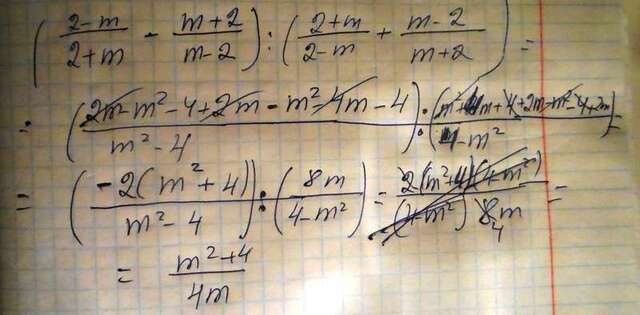 ( (2-m)/(2+m) - (m+2)/(m-2) ) : ( (2+m)/(2-m) + (m-2)/(m+2) ) =
= ( (2m-m²-4+2m-m²-4m-4)/(m²-4) ) : ( (m²+4m+4+2m-m²-4+2m)/(4-m²) ) =
= ( -2(m²+4)/(m²-4) ) : ( 8m/(4-m²) ) = 2(m²+4)(4-m²)/((4-m²) 8m) =
4
= (m²+4)/(4m)